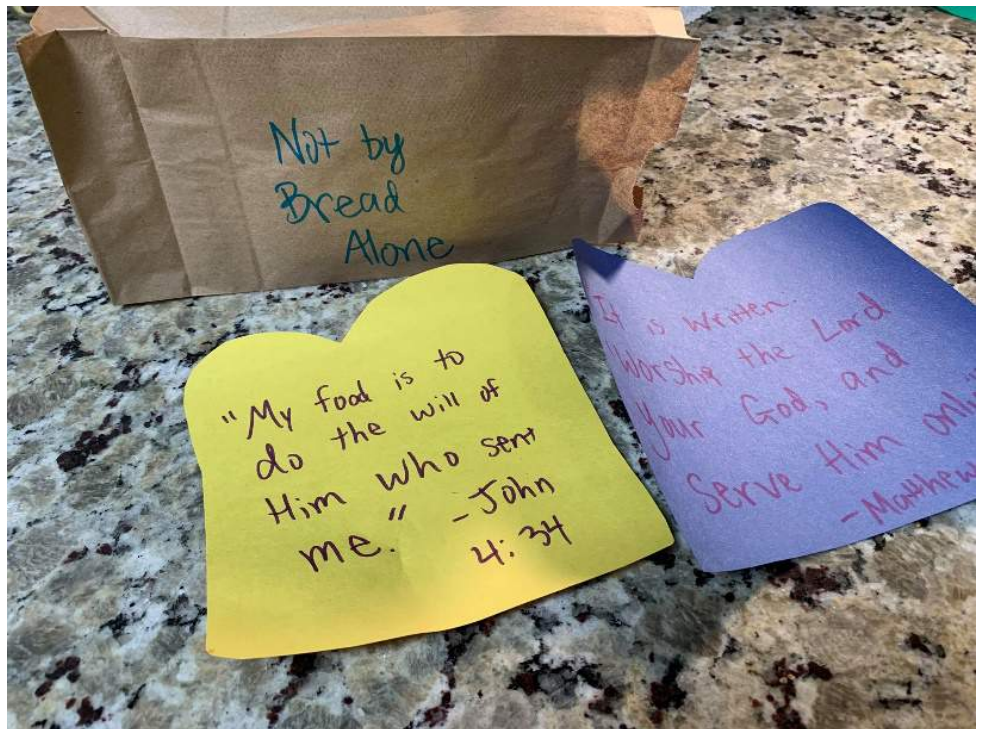 Not by
Bread
Alone
"My food is to
do the will of
Him who sent
me." -John
4:34
It is written.
Worship the Lord
your God, and
Serve Him only"
-Matthew